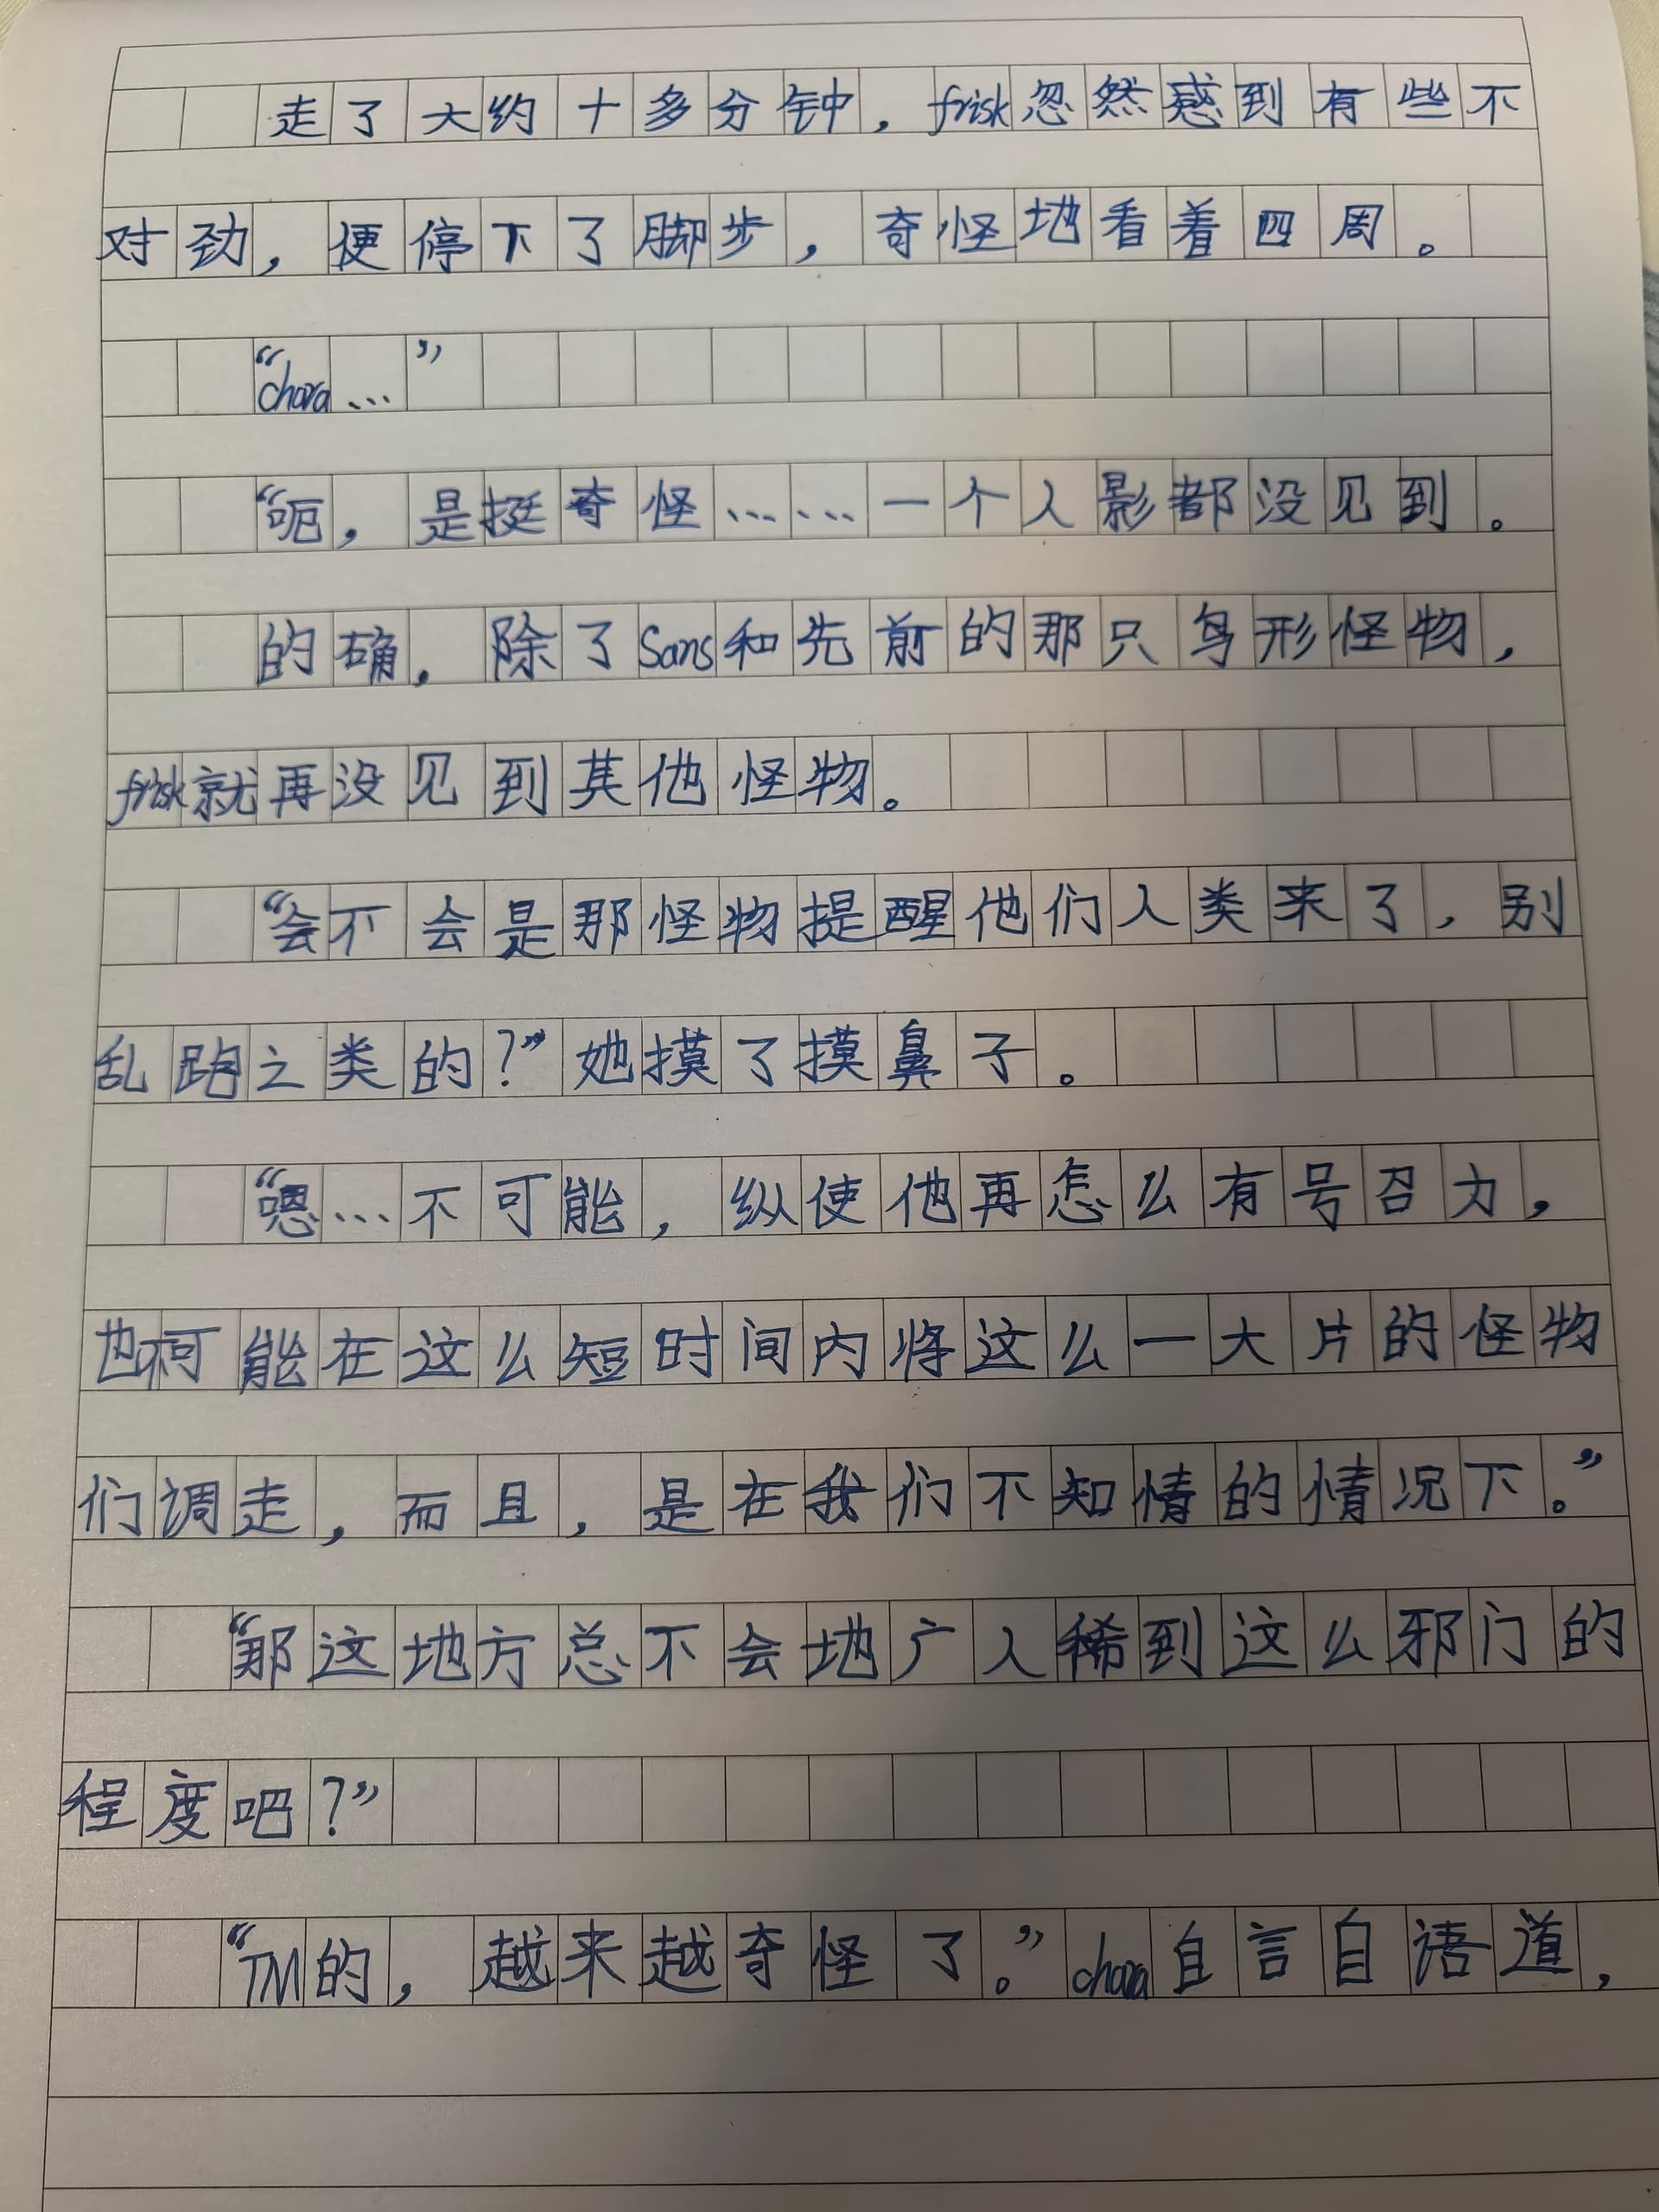 走了大约十多分钟，frisk忽然感到有些不
对劲，便停下了脚步，奇怪地看着四周。
“chara…”
“呃，是挺奇怪……一个人影都没见到。
的确，除了Sans和先前的那只鸟形怪物，
frisk就再没见到其他怪物。
“会不会是那怪物提醒他们人类来了，别
乱跑之类的？”她摸了摸鼻子。
“嗯…不可能，纵使他再怎么有号召力，
也不可能在这么短时间内将这么一大片的怪物
们调走，而且，是在我们不知情的情况下。”
“那这地方总不会地广人稀到这么邪门的
程度吧？”
“TM的，越来越奇怪了。”chara自言自语道，